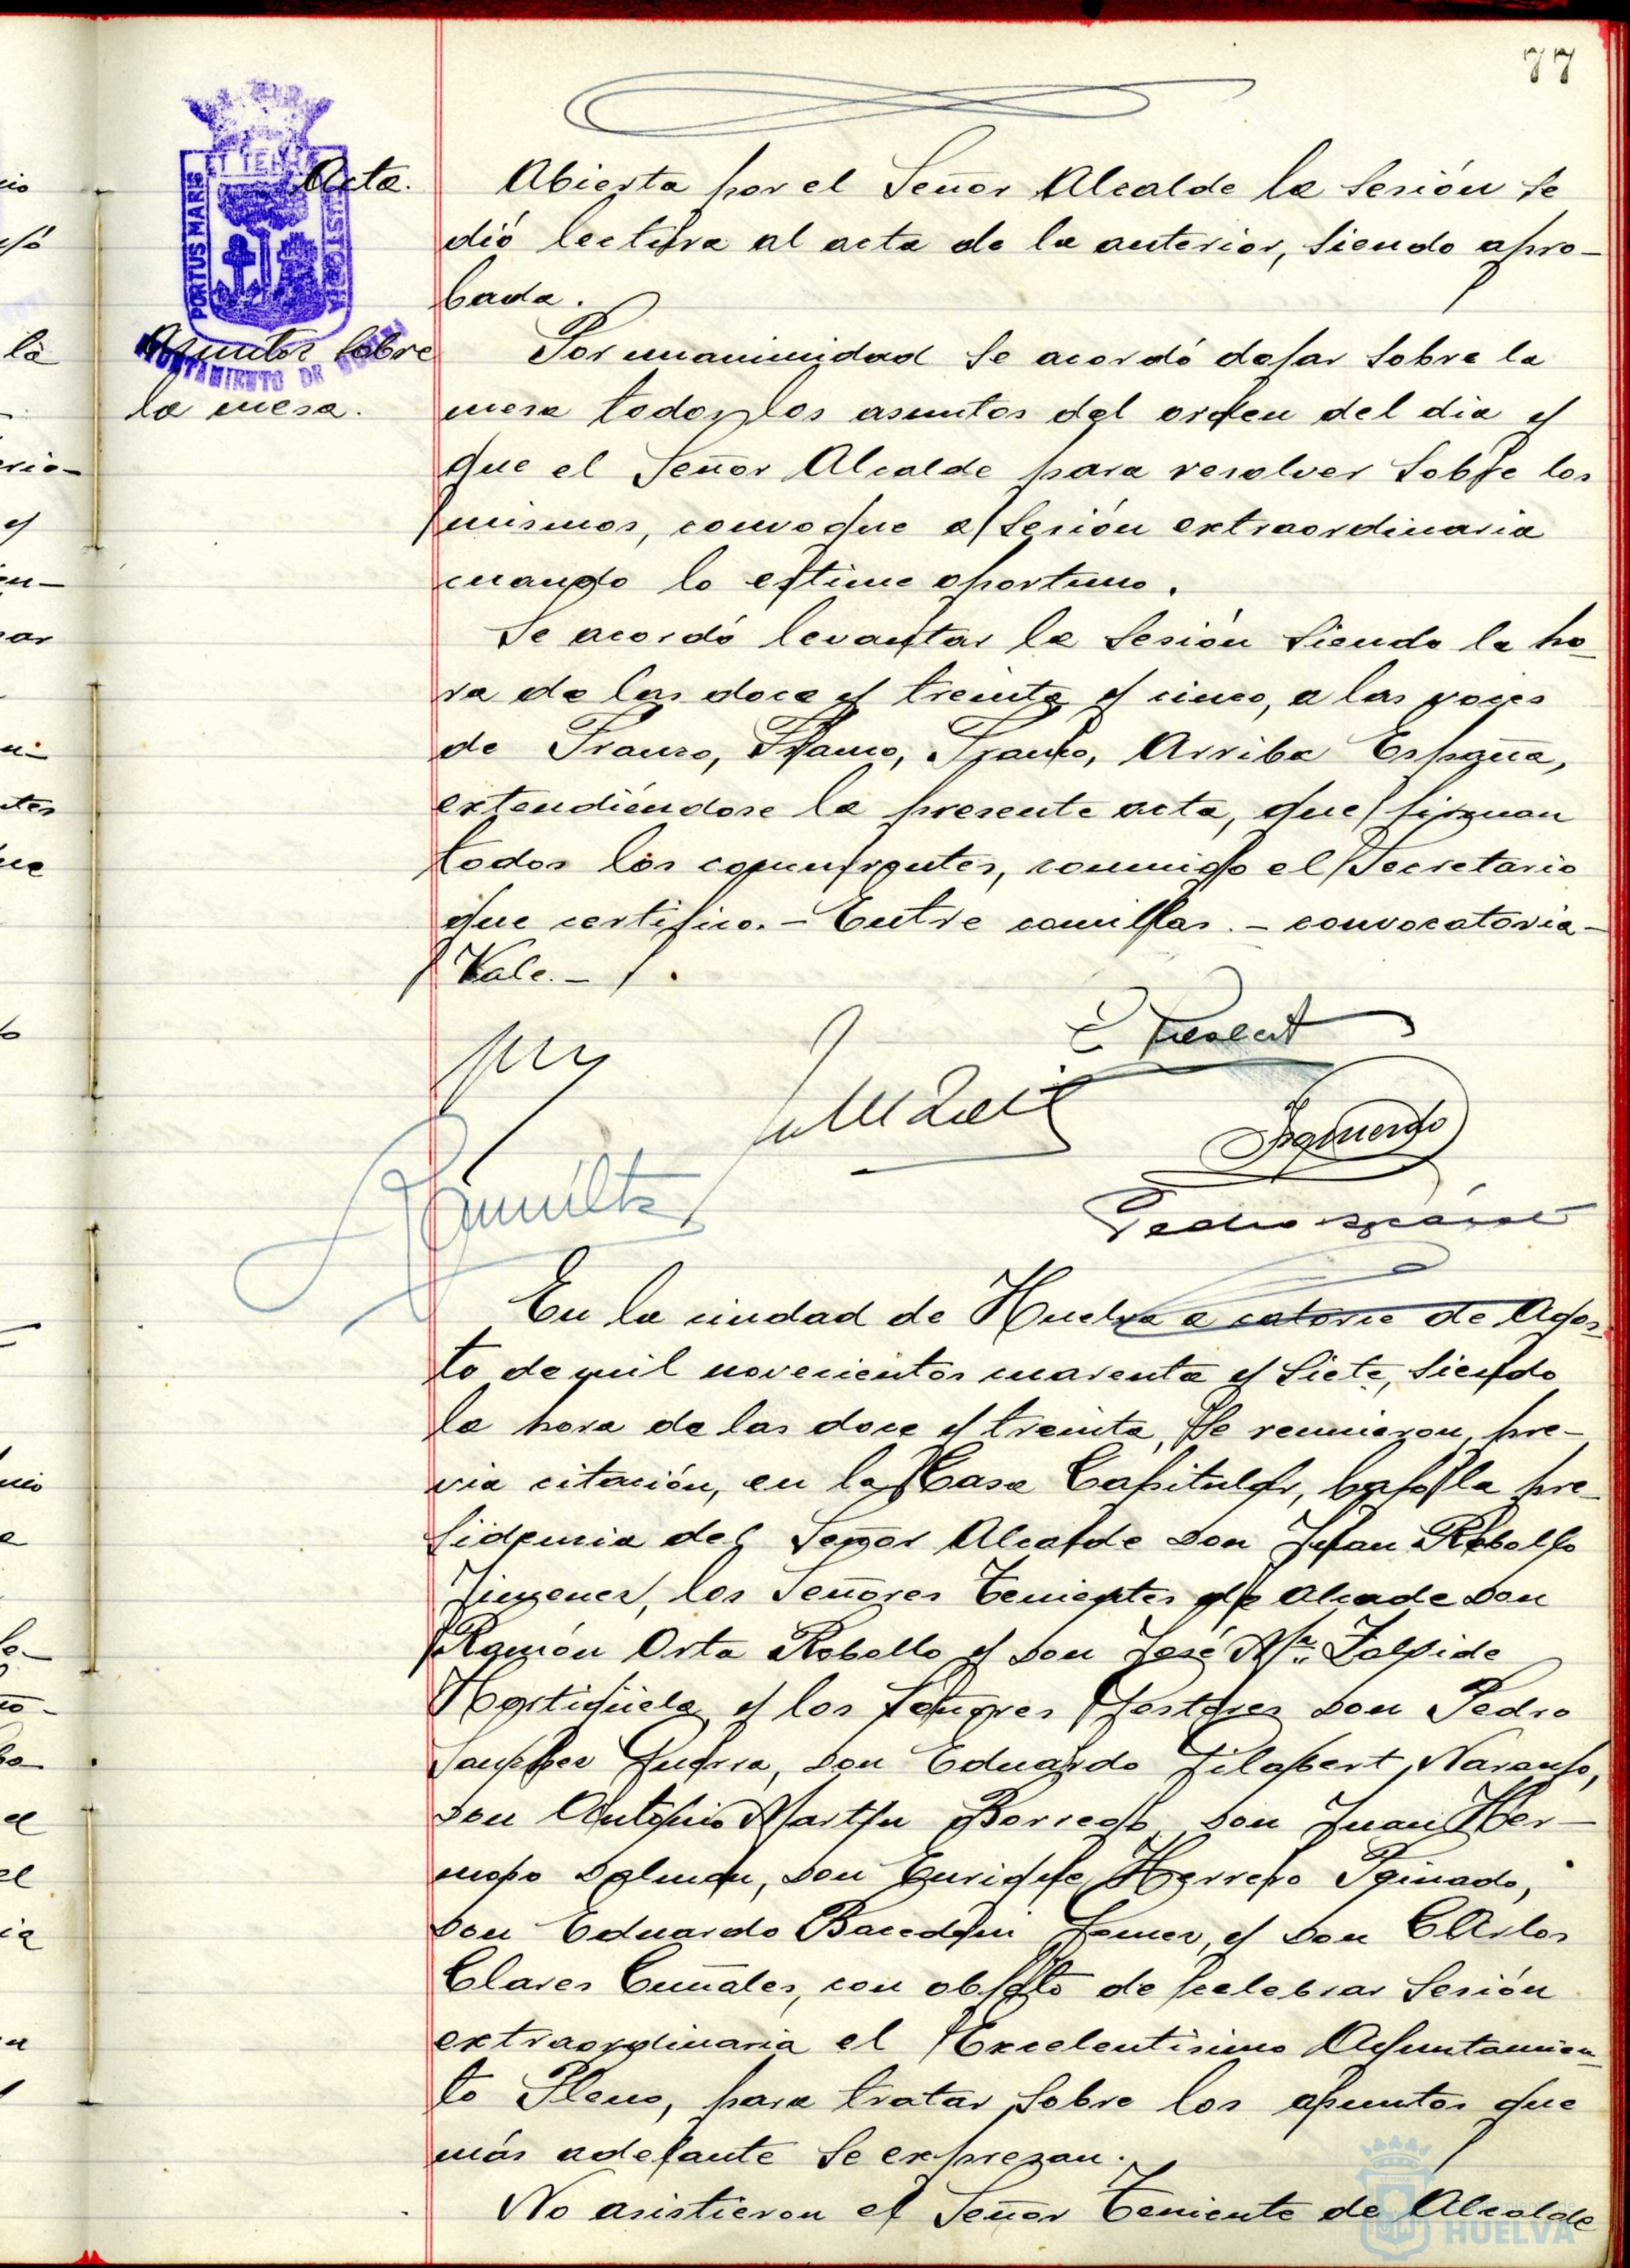 77
Acta.
Abierta por el Señor Alcalde la Sesión se
dió lectura al acta de la anterior, siendo apro-
bada.
Asuntos sobre
la mesa.
Por unanimidad se acordó dejar sobre la
mesa todos los asuntos del orden del dia y
que el Señor Alcalde para resolver sobre los
mismos, convoque a sesión extraordinaria
cuando lo estime oportuno.
Se acordó levantar la sesión siendo la ho-
ra de las doce y treinta y cinco, a las voces
de Franco, Franco, Franco, Arriba España,
extendiéndose la presente acta, que firman
todos los concurrentes, conmigo el Secretario
que certifico.- Entre comillas.- convocatoria-
Vale.-
Izquierdo
Pedro
En la ciudad de Huelva a catorce de Agos-
to de mil novecientos cuarenta y siete, siendo
la hora de las doce y treinta, se reunieron, pre-
via citación, en la Casa Capitular, bajo la pre-
sidencia del Señor Alcalde Don Juan Rebollo
Jimenez, los Señores Tenientes de Alcade Don
Ramón Orta Rebollo y Don José Mª. Zalvide
Hortigüela y los Señores Gestores Don Pedro
Sanchez Guerra, Don Eduardo Gilabert Naranjo,
Don Antonio Martin Borrego, Don Juan Her-
moso Dolman, Don Enrique Herrero Peinado,
Don Eduardo Bacedoni Gomez, y Don CArlos
Clares Cumales, con objeto de celebrar Sesión
extraordinaria el Excelentisimo Ayuntamien-
to Pleno, para tratar sobre los asuntos que
más adelante se expresan.
No asistieron el Señor Teniente de Alcalde
PORTUS MARIS
ET TERRE
CUSTODIA
AYUNTAMIENTO DE HUELVA
HUELVA